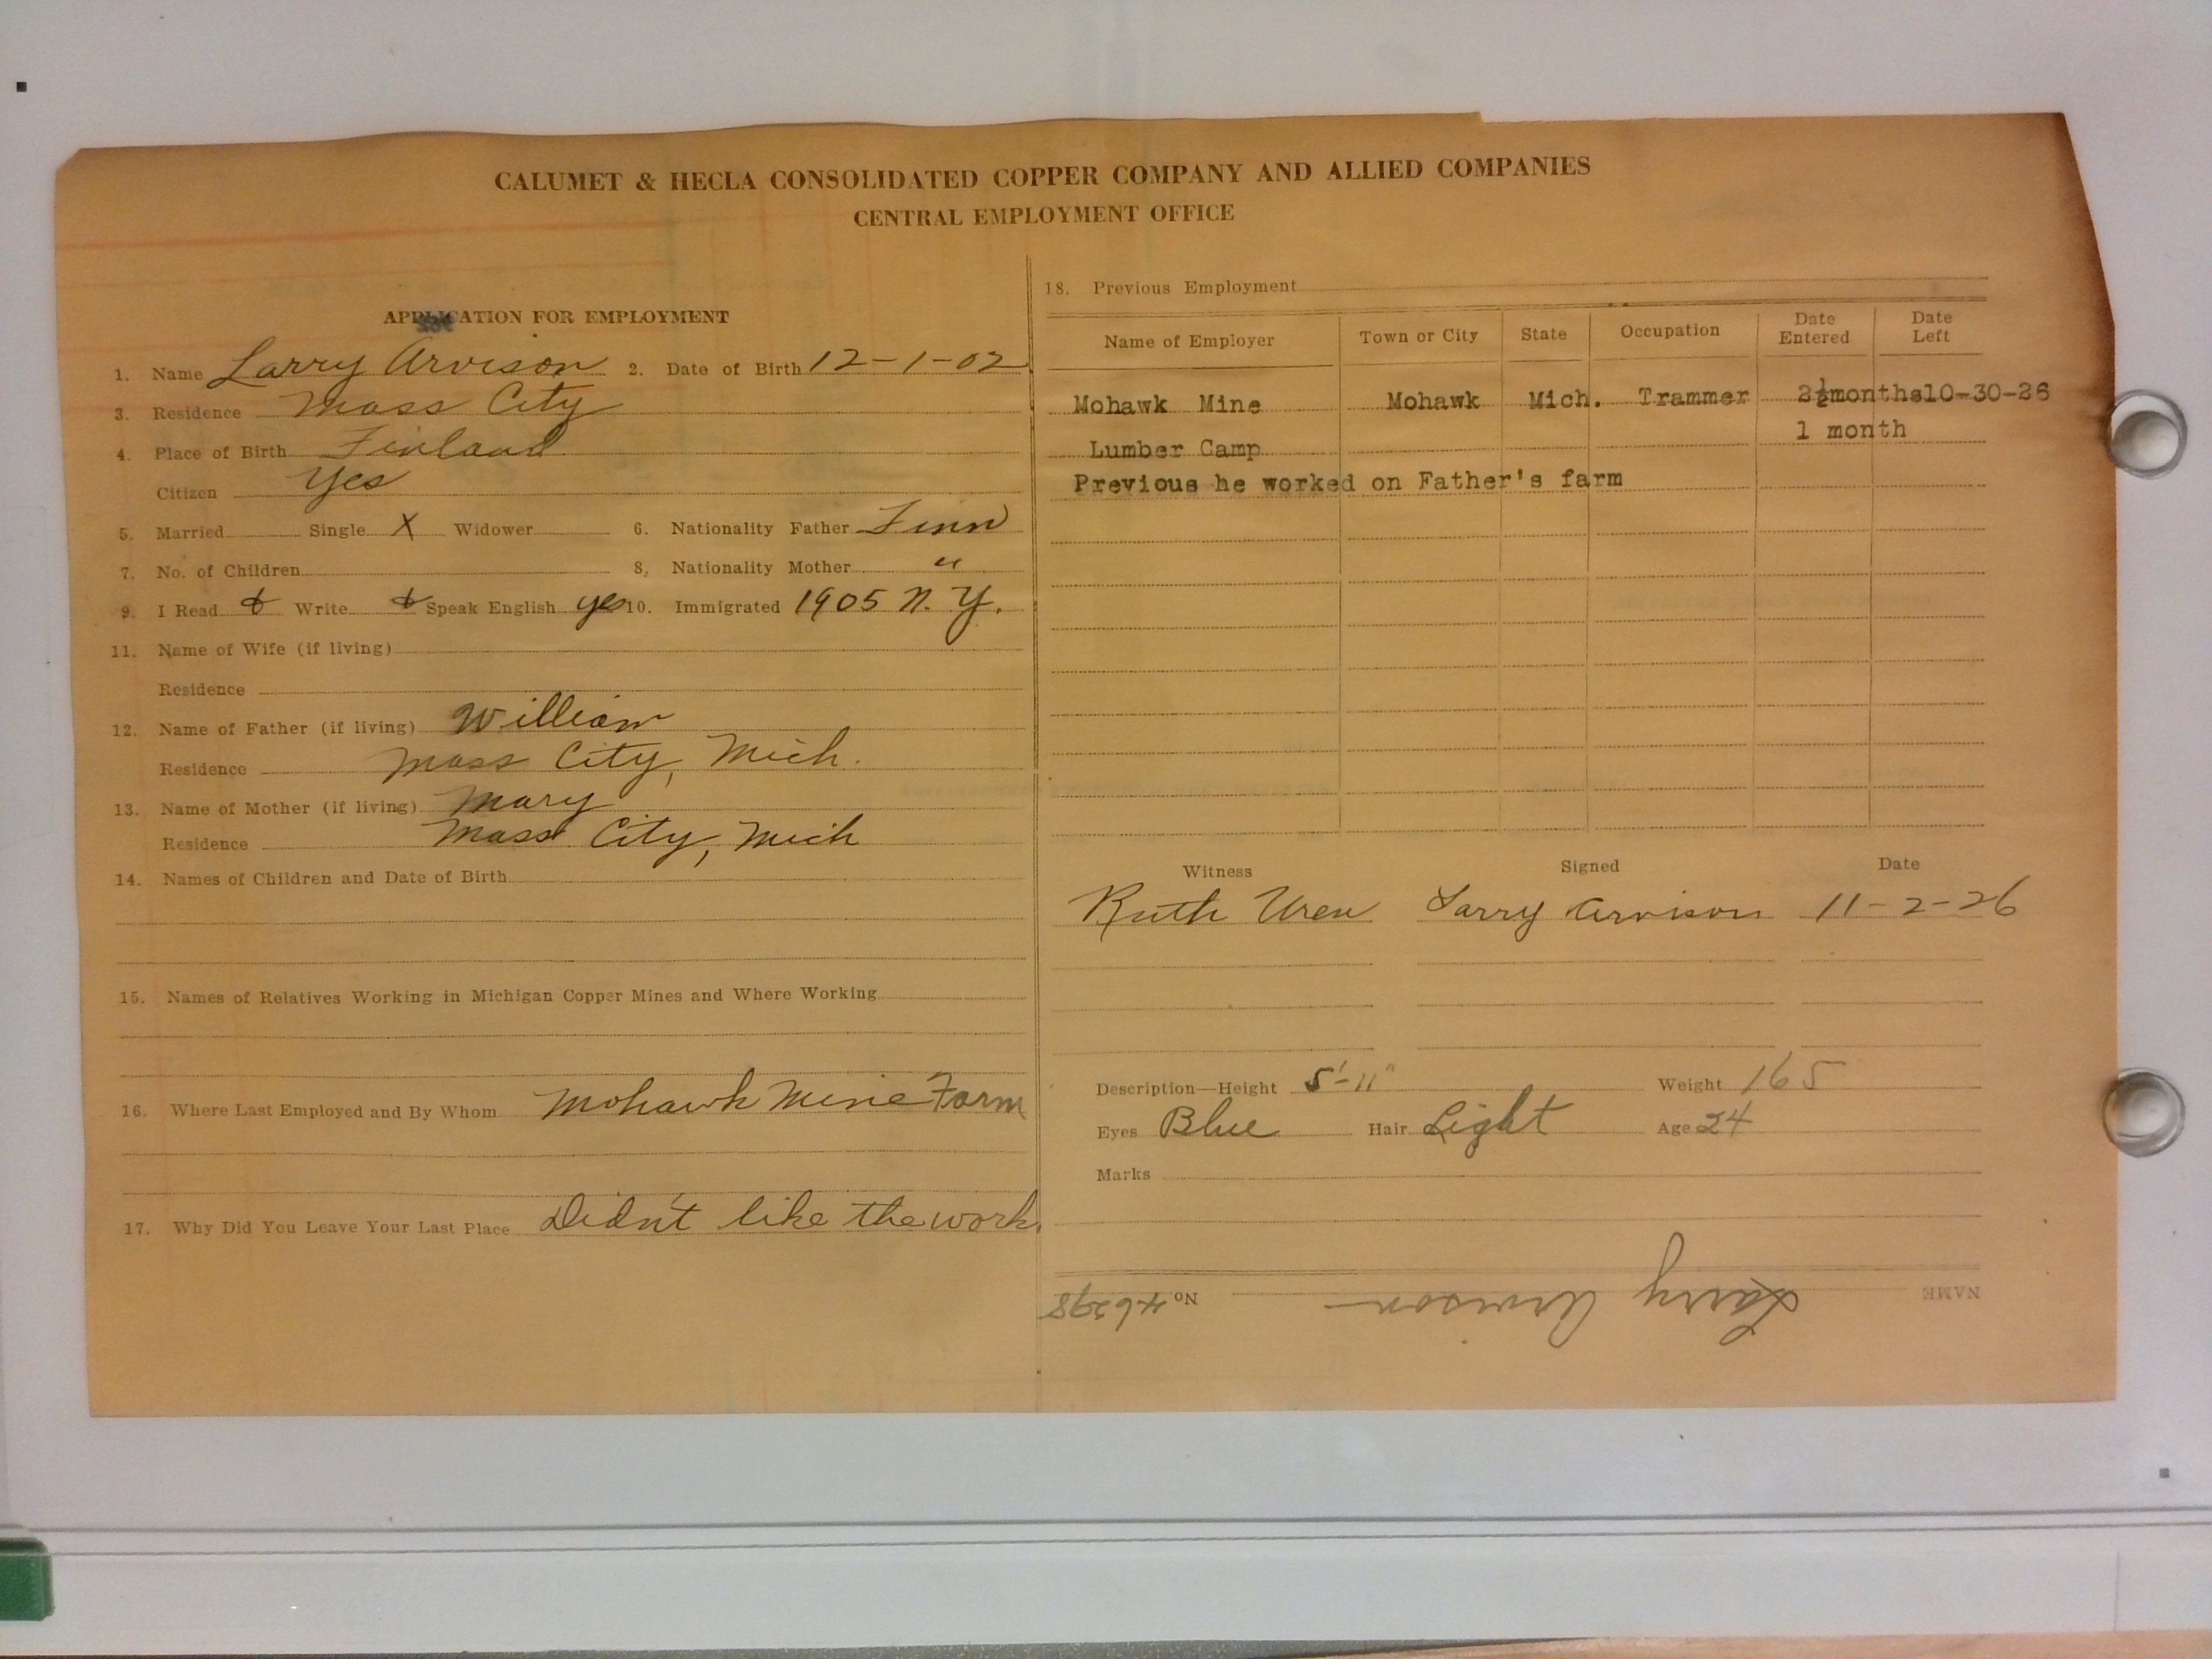 CALUMET & HECLA CONSOLIDATED COPPER COMPANY AND ALLIED COMPANIES
CENTRAL EMPLOYMENT OFFICE
APPLICATION FOR EMPLOYMENT
1. Name Larry Arvison 2. Date of Birth 12-1-02
3. Residence Mass City
4. Place of Birth Finland
Citizen Yes
5. Married Single X Widower 6. Nationality Father Finn
7. No. of Children 8, Nationality Mother "
9. I Read & Write & Speak English yes 10. Immigrated 1905 N. Y.
11. Name of Wife (if living)
Residence
12. Name of Father (if living) William
Residence Mass City, Mich.
13. Name of Mother (if living) Mary
Residence Mass City, Mich
14. Names of Children and Date of Birth
15. Names of Relatives Working in Michigan Copper Mines and Where Working
16. Where Last Employed and By Whom Mohawk Mine Farm
17. Why Did You Leave Your Last Place Didn't like the work.
18. Previous Employment
Name of Employer Town or City State Occupation Date Entered Date Left
Mohawk Mine Mohawk Mich. Trammer 2½months 10-30-26
Lumber Camp 1 month
Previous he worked on Father's farm
Witness Signed Date
Ruth Uren Larry Arvison 11-2-26
Description—Height 5'-11" Weight 165
Eyes Blue Hair Light Age 24
Marks
NAME Larry Arvison No. 46298